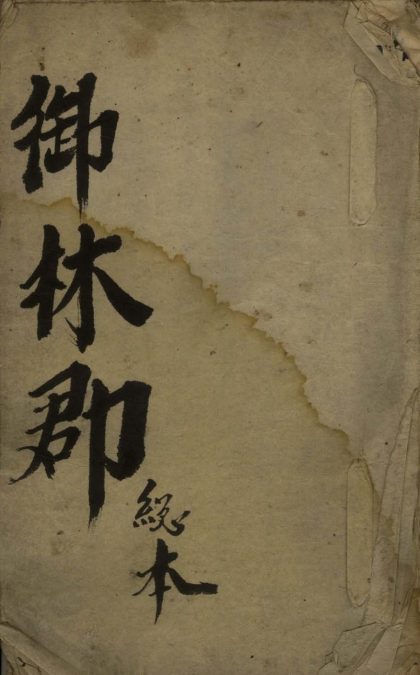 御林郡
総本